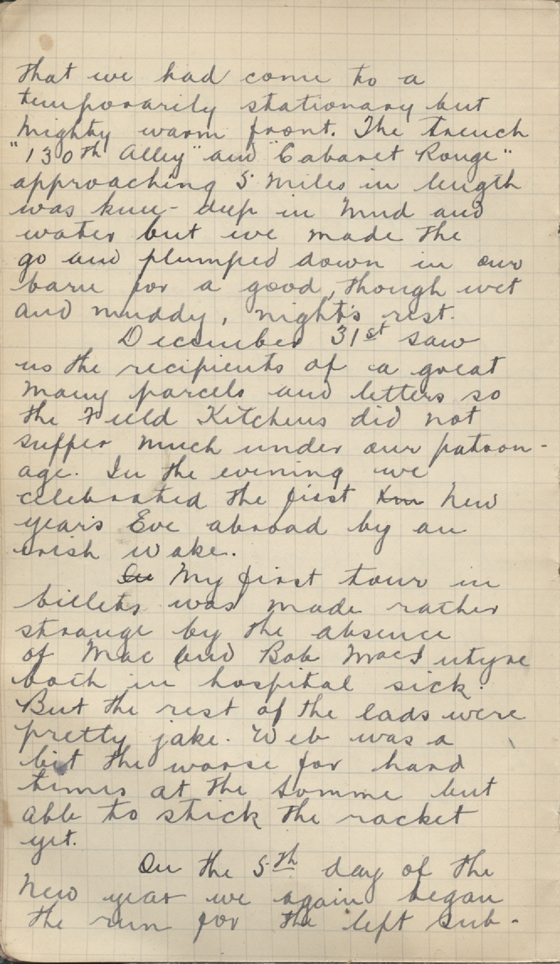 that we had come to a
temporarily stationary but
mighty warm front. The trench
"130th Alley" and "Cabaret Rouge"
approaching 5 miles in length
was knee-deep in mud and
water but we made the
go and plumped down in our
barn for a good, though wet
and muddy, night's rest.
December 31st saw
us the recipients of a great
many parcels and letters so
the Field Kitchens did not
suffer much under our patron-
age. In the evening we
celebrated the first Xm New
year's Eve abroad by an
irish wake.
In My first tour in
billets was made rather
strange by the absence
of Mac and Bob MacIntyre
both in hospital sick.
But the rest of the lads were
pretty jake. Web was a
bit the worse for hard
times at the Somme but
able to stick the racket
yet.
On the 5th day of the
New year we again began
the run for the left sub-